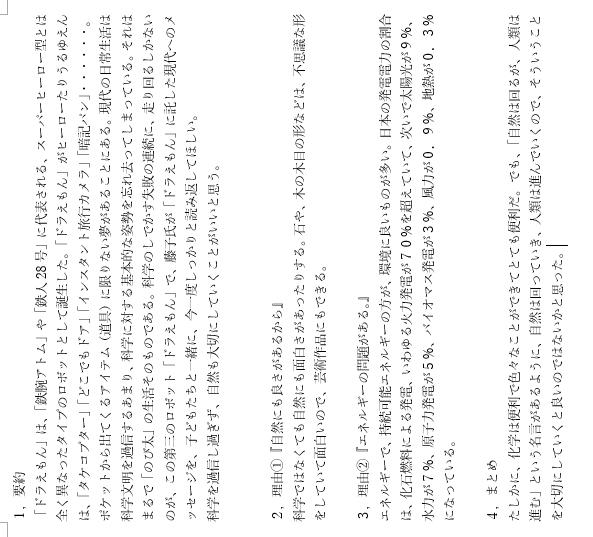 1、要約
「ドラえもん」は、「鉄腕アトム」や「鉄人28号」に代表される、スーパーヒーロー型とは
全く異なったタイプのロボットとして誕生した。「ドラえもん」がヒーローたりうるゆえん
は、「タケコプター」「どこでもドア」「インスタント旅行カメラ」「暗記パン」・・・・・・。
ポケットから出てくるアイテム（道具）に限りない夢があることにある。現代の日常生活は
科学文明を過信するあまり、科学に対する基本的な姿勢を忘れ去ってしまっている。それは
まるで「のび太」の生活そのものである。科学のしでかす失敗の連続に、走り回るしかない
のが、この第三のロボット「ドラえもん」で、藤子氏が「ドラえもん」に託した現代へのメ
ッセージを、子どもたちと一緒に、今一度しっかりと読み返してほしい。
科学を過信し過ぎず、自然も大切にしていくことがいいと思う。
2、理由①『自然にも良さがあるから』
科学ではなくても自然にも面白さがあったりする。石や、木の木目の形などは、不思議な形
をしていて面白いので、芸術作品にもできる。
3、理由②『エネルギーの問題がある。』
エネルギーで、持続可能エネルギーの方が、環境に良いものが多い。日本の発電電力の割合
は、化石燃料による発電、いわゆる火力発電が７０％を超えていて、次いで太陽光が９％、
水力が７％、原子力発電が５％、バイオマス発電が３％、風力が０．９％、地熱が０．３％
になっている。
4、まとめ
たしかに、化学は便利で色々なことができてとても便利だ。でも、「自然は回るが、人類は
進む」という名言があるように、自然は回っていき、人類は進んでいくので、そういうこと
を大切にしていくと良いのではないかと思った。